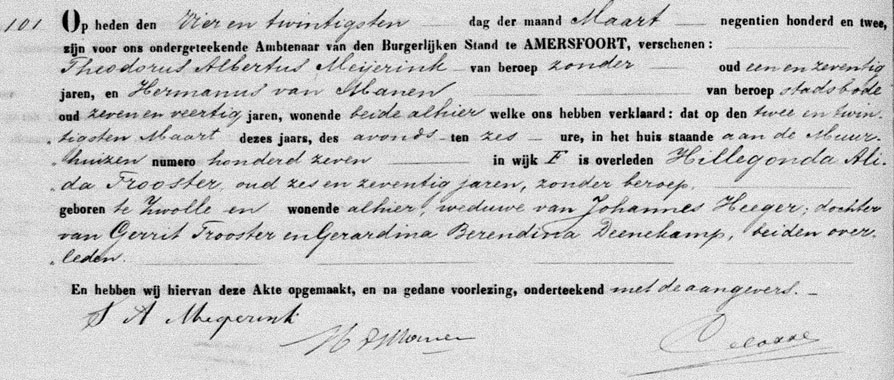 101 Op heden den Vier en twintigsten dag der maand Maart negentien honderd en twee,
zijn voor ons ondergeteekende Ambtenaar van den Burgerlijken Stand te AMERSFOORT, verschenen:
Theodorus Albertus Meijerink van beroep zonder oud een en zeventig
jaren, en Hermanus van Manen van beroep stadsbode
oud zeven en veertig jaren, wonende beide alhier welke ons hebben verklaard: dat op den twee en twin-
tigsten Maart dezes jaars, des avonds ten zes ure, in het huis staande aan de Muur-
huizen numero honderd zeven in wijk F is overleden Hillegonda Ali-
da Trooster, oud zes en zeventig jaren, zonder beroep,
geboren te Zwolle en wonende alhier, weduwe van Johannes Heeger; dochter
van Gerrit Trooster en Gerardina Berendina Deenekamp, beiden over-
leden.
En hebben wij hiervan deze Akte opgemaakt, en na gedane voorlezing, onderteekend met de aangevers.
T A Meijerink
H v Manen